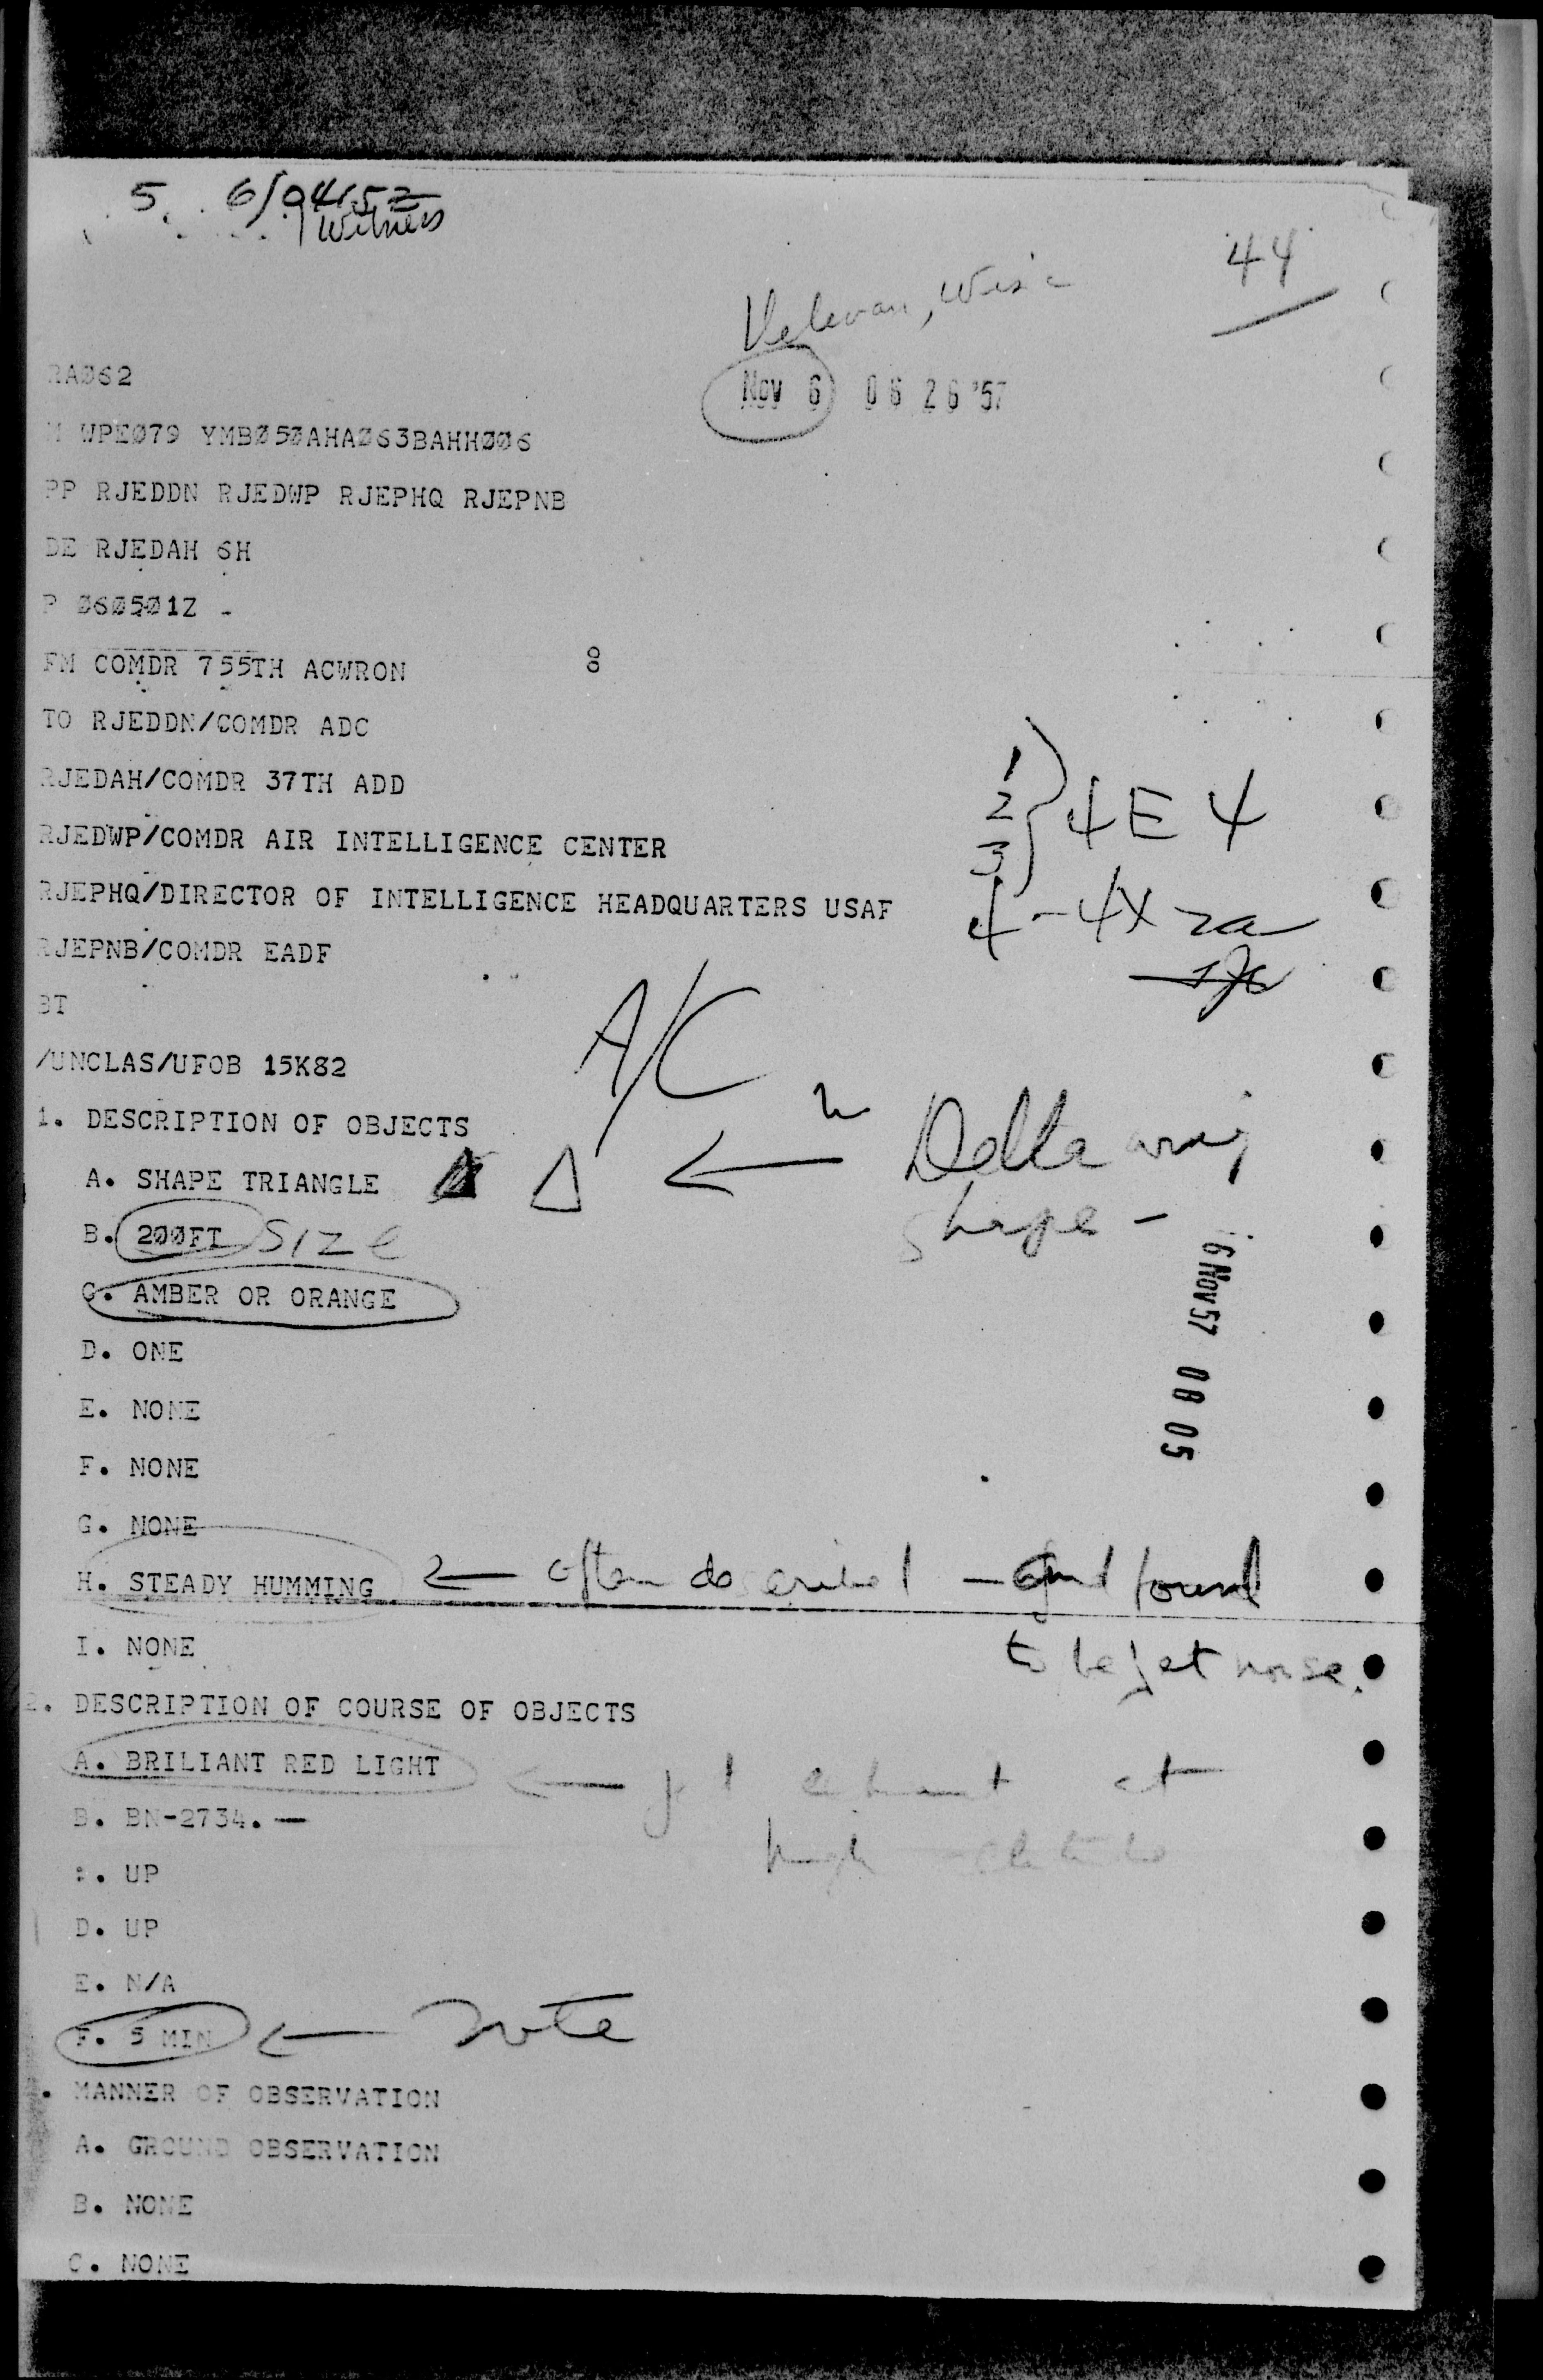 5. 6/0415Z
1 Witness
44
Wisc
Nov 6 06 26 '57
RAØ62
WPEØ79 YMBØ5ØAHAØ63BAHHØØ6
PP RJEDDN RJEDWP RJEPHQ RJEPNB
DE RJEDAH 6H
P Ø6Ø5Ø1Z
FM COMDR 755TH ACWRON
TO RJEDDN/COMDR ADC
RJEDAH/COMDR 37TH ADD
1
2 } 4E4
3
RJEDWP/COMDR AIR INTELLIGENCE CENTER
RJEPHQ/DIRECTOR OF INTELLIGENCE HEADQUARTERS USAF
4 - 4X2a
RJEPNB/COMDR EADF
BT
A/C
/UNCLAS/UFOB 15K82
1. DESCRIPTION OF OBJECTS
A. SHAPE TRIANGLE Δ ← Delta wing
shape -
B. 2ØØFT Size
C. AMBER OR ORANGE
6 Nov 57 08 05
D. ONE
E. NONE
F. NONE
G. NONE
H. STEADY HUMMING ← often described - and found
to be jet noise.
I. NONE
2. DESCRIPTION OF COURSE OF OBJECTS
A. BRILIANT RED LIGHT ← jet exhaust at
high altitude
B. BN-2734. —
:. UP
D. UP
E. N/A
F. 5 MIN ← note
. MANNER OF OBSERVATION
A. GROUND OBSERVATION
B. NONE
C. NONE